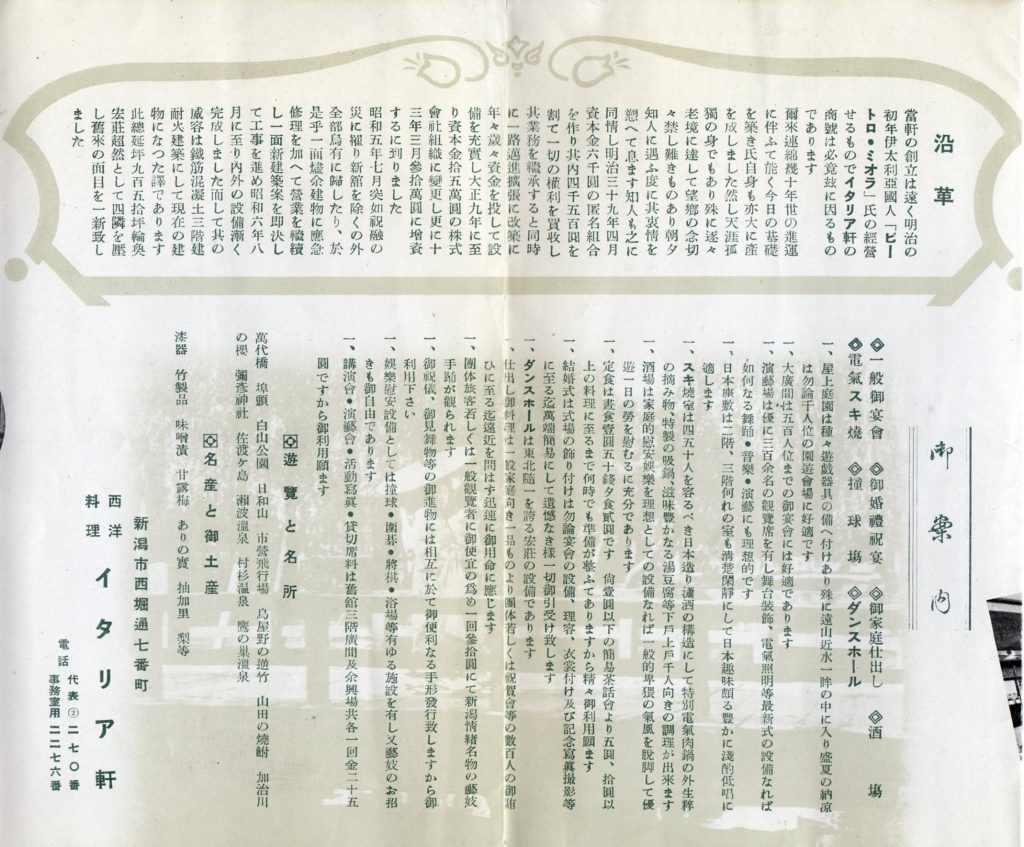 沿革
當軒の創立は遠く明治の
初年伊太利亞國人「ピー
トロ・ミオラ」氏の經營
せるものでイタリア軒の
商號は必竟玆に因るもの
であります
爾來連綿幾十年世の進運
に伴ふて能く今日の基礎
を築き氏自身も亦大に產
を成しました然し天涯孤
獨の身でもあり殊に逐々
老境に達して望鄕の念切
々禁し難きものあり朝夕
知人に遇ふ度に其衷情を
愬へて息ます知人も之に
同情し明治三十九年四月
資本金六千圓の匿名組合
を作り其内四千五百圓を
割て一切の權利を買收し
其業務を繼承すると同時
に一路邁進擴張に改築に
年々歲々資金を投して設
備を充實し大正九年に至
り資本金拾五萬圓の株式
會社組織に變更し更に十
三年三月參拾萬圓に增資
するに到りました
昭和五年七月突如祝融の
災に罹り新舘を除くの外
全部烏有に歸したり、於
是乎一面燼余建物に應急
修理を加へて營業を繼續
し一面新建築案を即決し
て工事を進め昭和六年八
月に至り内外の設備漸く
完成しました而して其の
威容は鐵筋混凝土三階建
耐火建築にして現在の建
物になつた譯であります
此總延坪九百五拾坪輪奐
宏莊超然として四隣を壓
し舊來の面目を一新致し
ました
御案内
◇一般御宴會 ◇御婚禮祝宴 ◇御家庭仕出し ◇酒場
◇電氣スキ燒 ◇撞球塲 ◇ダンスホール
一、屋上庭園は種々遊戲器具の備へ付けあり殊に遠山近水一眸の中に入り盛夏の納凉
は勿論千人位の園遊會場に好適です
一、大廣間は五百人位までの御宴會には好適であります
一、演藝場は優に三百余名の觀覽席を有し舞台裝飾、電氣照明等最新式の設備なれば
如何なる舞踊・音樂・演藝にも理想的です
一、日本座敷は二階、三階何れの室も淸楚閑靜にして日本趣味頗る豐かに淺酌低唱に
適します
一、スキ燒室は四五十人を容るべき日本造り瀟洒の構造にして特別電氣肉鍋の外生粹
の摘み物、特製の吸鍋、滋味豐かなる湯豆腐等下戶上戶千人向きの調理が出來ます
一、酒場は家庭的慰安娛樂を理想としての設備なれば一般的卑猥の氣風を脫脚して優
遊一日の勞を慰むるに充分であります
一、定食は晝食壹圓五十錢夕食貳圓です 尙壹圓以下の簡易茶話會より五圓、拾圓以
上の料理に至るまで何時でも準備が整ふてありますから精々御利用願ます
一、結婚式は式場の飾り付けは勿論宴會の設備、理容、衣裳付け及び記念寫眞撮影等
に至る迄萬端簡易にして遺憾なき樣一切御引受け致します
一、ダンスホールは東北隨一を誇る宏莊の設備であります
一、仕出し御料理は一般家庭向き一品ものより團体若しくは祝賀會等の數百人の御賄
ひに至る迄遠近を問はす迅速に御用命に應じます
一、團体旅客若しくは一般觀覽者に御便宜の爲め一回參拾圓にて新潟情緖名物の藝妓
手踊が觀られます
一、御祝儀、御見舞物等の御進物には相互に於て御便利なる手形發行致しますから御
利用下さい
一、娛樂慰安設備としては撞球・圍碁・將棋・浴場等有ゆる施設を有し又藝妓のお招
きも御自由であります
一、講演會・演藝會・活動寫眞・貸切席料は舊舘三階廣間及余興場共各一回金二十五
圓ですから御利用願ます
◇遊覽と名所
萬代橋 埠頭 白山公園 日和山 市營飛行場 鳥屋野の逆竹 山田の燒鮒 加治川
の櫻 彌彥神社 佐渡ケ島 瀨波溫泉 村杉溫泉 鷹の巢溫泉
◇名產と御土產
漆器 竹製品 味噌漬 甘露梅 ありの實 抽加里 梨等
新潟市西堀通七番町
西洋料理 イタリア軒
電話 代表②二七〇番
事務室用二二七六番